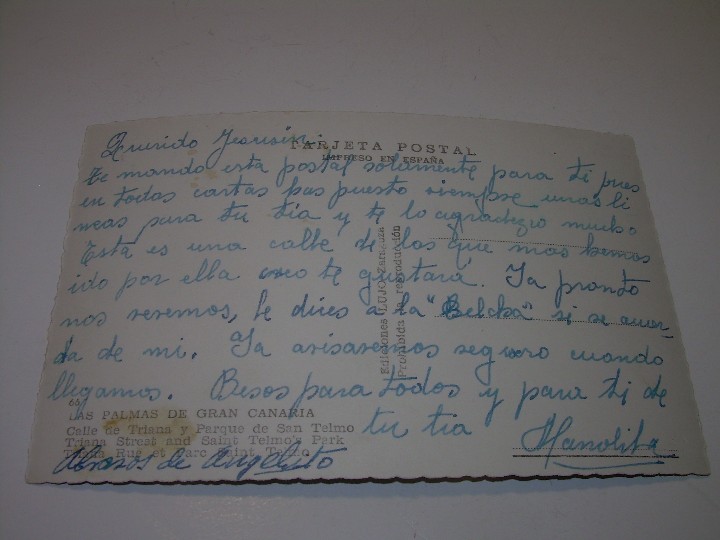 TARJETA POSTAL
IMPRESO EN ESPAÑA
Querido Jesusin:
te mando esta postal solamente para ti pues
en todas cartas has puesto siempre unas li
neas para tu tia y te lo agradezco mucho
Esta es una calle de las que mas hemos
ido por ella creo te gustará. Ya pronto
nos veremos, le dices a la "Belcha" si se acuer
da de mi. Ya avisaremos seguro cuando
llegamos. Besos para todos y para ti de
tu tia Manolita
Abrazos de Angelito
Ediciones LUJO
Prohibida la reproducción
66
LAS PALMAS DE GRAN CANARIA
Calle de Triana y Parque de San Telmo
Triana Street and Saint Telmo's Park
Triana Rue et Parc Saint Telmo